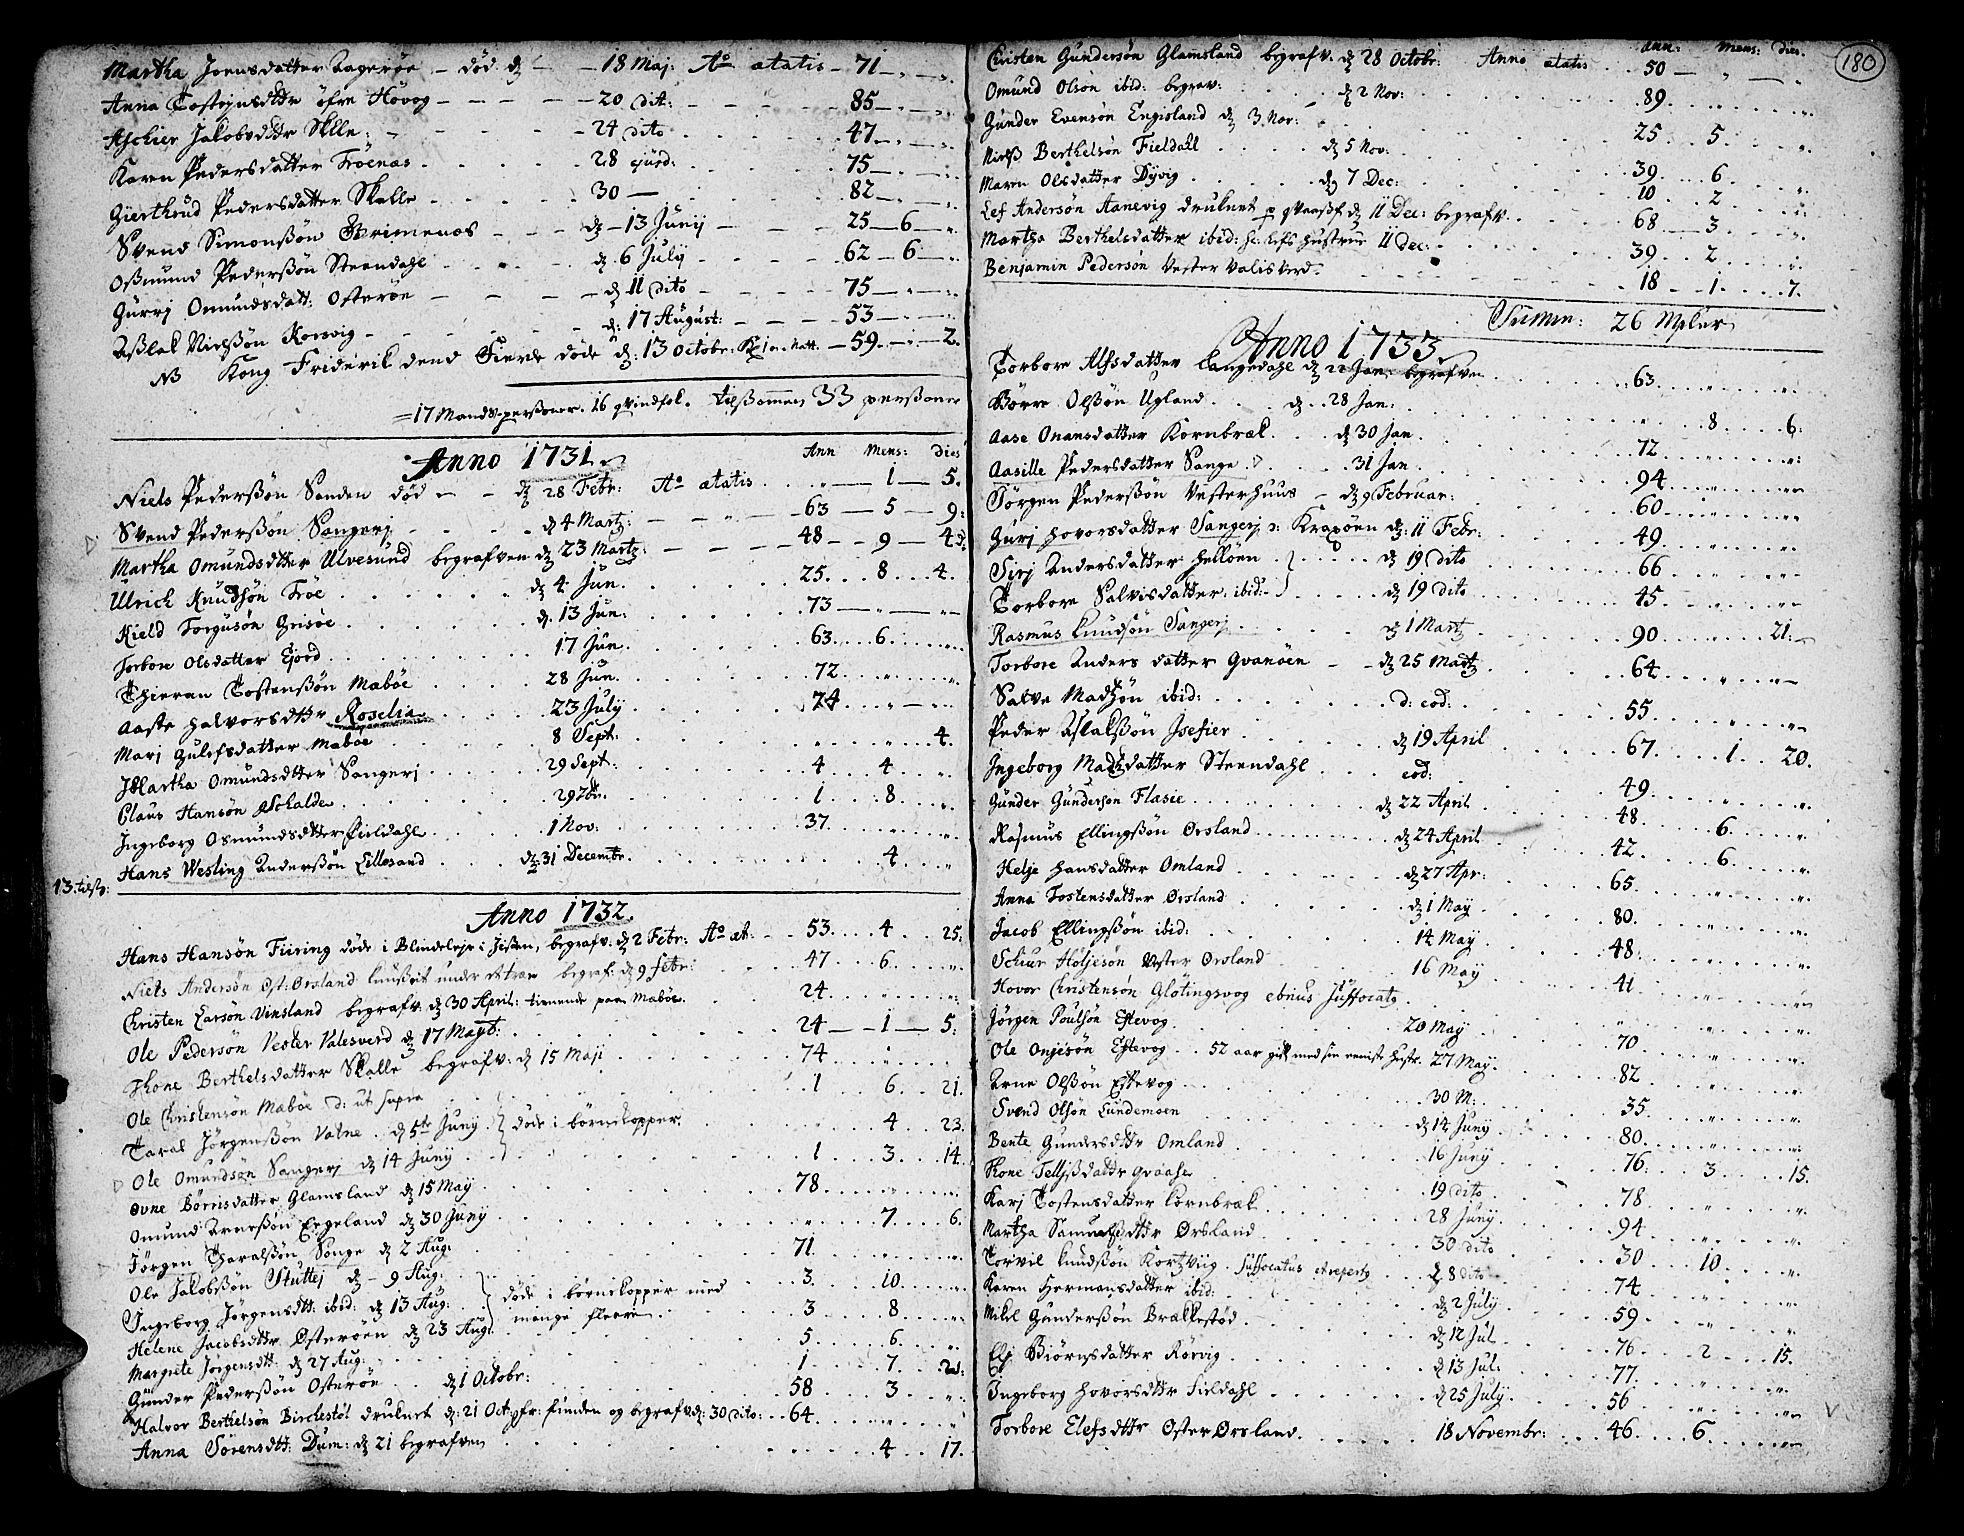 Martha Joensdatter Aagerøe – død d. – 18 Maj: Ao ætatis – 71 – „ – „
Anna Tostensdttr øfre Høvog – 20 dit: – 85 – „ – „
Jakobsdttr Skalle: – 24 dito – 47 – „ – „
Karen Pedersdatter Trøenæs – 28 – 75 – „ – „
Gierthrud Pedersdatter Skalle – 30 – 82 – „ – „
Svend Simonsøn Grimenæs – d. 13 Junij – 25 – 6 – „
Osmund Pedersøn Steendahl – d. 6 Julij – 62 – 6 – „
Gurrj Omundsdatt: Osterøe – d. 11 dito – 75 – „ – „
Aslak Nielsøn Korsvig – d: 17 August: – 53 – „ – „
NB Kong Friderik dend Fierde døde d: 13 Octobr: Kl 1 om Natt. – 59 – „ – 2.
= 17 Mandspersoner. 16 qvindfol. tilsammen 33 personer
Anno 1731. Ann Mens: dies
Niels Pedersøn Sanden død – d 28 Febr: Ao ætatis „ – 1 – 5.
Svend Pedersøn Sangerj – d 4 Martz: – 63 – 5 – 9:
Martha Omundsdtter Ulvesund begrafven d 23 Martz: – 48 – 9 – 4 d.
Ulrich Knudsøn Trøe d 4 Jun. 25. 8. 4.
Kield Torgusøn Grisøe d. 13 Jun: 73 – „ – „
Torbore Olsdatter Ejord 17 Jun. 63. 6. „
Thieran Tostensøn Mabøe 28 Jun. 72. „ „
Aaste Halvorsdttr Roselia 23 Julij 74. „ – „
Marj Gulefsdatter Mabøe 8 Sept: „ „ 4.
Martha Omundsdtter Sangerj 29 Sept: 4. 4. „
Claus Hansøn Schalde 29 1. 8. „
Ingeborg Osmundsdtter Fieldahl 1 Nov: 37. „ „
Hans Wesling Andersøn Lillesand d. 31 Decembr. 4. „
13. tilsf:
Anno 1732.
Hans Hansøn Fiiring døde i Blindleje i, begrafv: d 2 Febr: Ao æt: 53. 4. 25.
Niels Andersøn Øst: Ørsland under begraf: d 9 Febr: 47. 6. „
Christen Larsøn Vinsland begrafv: d 30 April: tienende paa Mabøe. 24. „ „
Ole Pedersøn Vester Valesverd d 17 Majt: 24 – 1 – 5.
Thone Berthelsdatter Skalle begrafv: d 15 Maji 74. „ „
Ole Christensøn Mabøe d: ut supra 1. 6. 21.
Taral Jørgensøn Vatne. d 5te Junij } døde i børnekopper. 4. 23.
Ole Omundsøn Sangerj d 14 Junij 1. 3. 14.
Øvne Børrisdatter Glamsland d 15 Maij 78. „ „
Omund Arnesøn Eegeland d 30 Junij „ 7. 6.
Jørgen Tharalsøn Songe d 2 Aug. 71. „ „
Ole Jakobsøn Stuttej d – 9 Aug: 3. 10. „
Ingeborg Jørgensdtt: ibid: d 13 Aug: } døde i børnekopper med 3. 8. „
Helene Jacobsdttr Østerøen d 23 Aug: mange fleere. 5. 6. „
Margrete Jørgensdtt: d 27 Aug: 1. 7. 21:
Gunder Pedersøn Osterøe d 1 Octobr: 58. 3. „
Halvor Berthelsøn Birchestøl druknet d: 21 Oct: funden og begrafv d: 30 dito: 64. „ „
Anna Sørensdtt: Dum: d 21 begrafven 4. 17.
180
Ann: Mens: dies.
Christen Gundersøn Glamsland begrafv. d 28 Octobr: Anno ætatis 50 – „ – „
Omund Olsøn ibid: begrav: d 2 Nov: 89. „ „
Gunder Evensøn Engisland d 3. Nov: 25. 5. „
Nielss Berthelsøn Fieldall d 5 Nov: 39. 6. „
Maren Olsdatter Dyvig d 7 Dec: 10. 2. „
Lef Andersøn Aanevig druknet d 11 Dec: begrafv. 68. 3. „
Martha Berthelsdatter ibid: hustrue 11 Dec: 39. 2. „
Benjamin Pedersøn Vester Valisverd. 18. 1. 7.
Summ: 26
Anno 1733.
Torbore Alfsdatter Langedahl d 22 Jan: begrafven 63. „ „
Børre Olsøn Ugland. d. 28 Jan: „ 8. 6.
Aase Onansdatter Kornbræk. d 30 Jan 72. „ „
Aasille Pedersdatter Sange. 31 Jan 94. „ „
Jørgen Pedersøn Vesterhuus – d 9 Februar: 60. „ „
Gurj Hovorsdatter Sangerj Kraxøen d: 11 Febr: 49. „ „
Sirj Andersdatter Helløen d 19 dito 66. „ „
Torbore Salvisdatter ibid: d 19 dito 45. „ „
Rasmus Knudsøn Sangerj. d 1 Martz 90. 21.
Torbore Anders datter Gvanøen – d 25 Martz 64. „ „
Salve Madsøn ibid: d: eod: 55. „ „
Peder Aslaksøn Isefier d 19 April 67. 1. 20.
Ingeborg Madzdatter Steendahl eod: 49. „ „
Gunder Gundersøn Flasie d 22 April 48. 6. „
Rasmus Ellingsøn Ørsland d 24 April 42. 6. „
Helje Hansdatter Omland d 27 Apr: 65. „ „
Anna Tostensdatter Ørsland d 1 Maij 80. „ „
Jacob Ellingsøn ibid: 14 Maij 48. „ „
Schiur Holjesøn Vester Ørsland 16 Maij 41. „ „
Hovor Christensøn Glötingsvog ebrius suffocatg „ „ „
Jørgen Poulsøn Eftevog. 20 Maij 70. „ „
Ole Onjesøn Eftevog. 52 aar gift med sin hustr. 27 Maij. 82. „ „
Arne Olsøn Eftevog 30 M: 35. „ „
Svend Olsøn Lundemoen d 14 Junij 80. „ „
Bente Gundersdttr Omland 16 Junij 76. 3. 15.
Thone Telljsdattr Graase 19 dito 78. „ „
Karj Tostensdatter Kornbræk. 28 Junij. 94. „ „
Martha Samuelsdttr Ørsland 30 dito 30. 10. „
Torvil Knudsøn Kortzviig. Suffocatus et repertg d 8 dito 74. „ „
Karen Hermansdatter ibid: d 2 Julij 59. „ „
Mikel Gundersøn Brækkestød d 12 Jul. 76. 2. 15.
Elj Biörnsdatter Rörvig d 13 Jul: 77. „ „
Ingeborg Hovorsdttr Fieldahl. d 25 Julij. 56. „ „
Torbore Elefsdttr Oster Ørsland. 18 Novembr: 46. 6. „